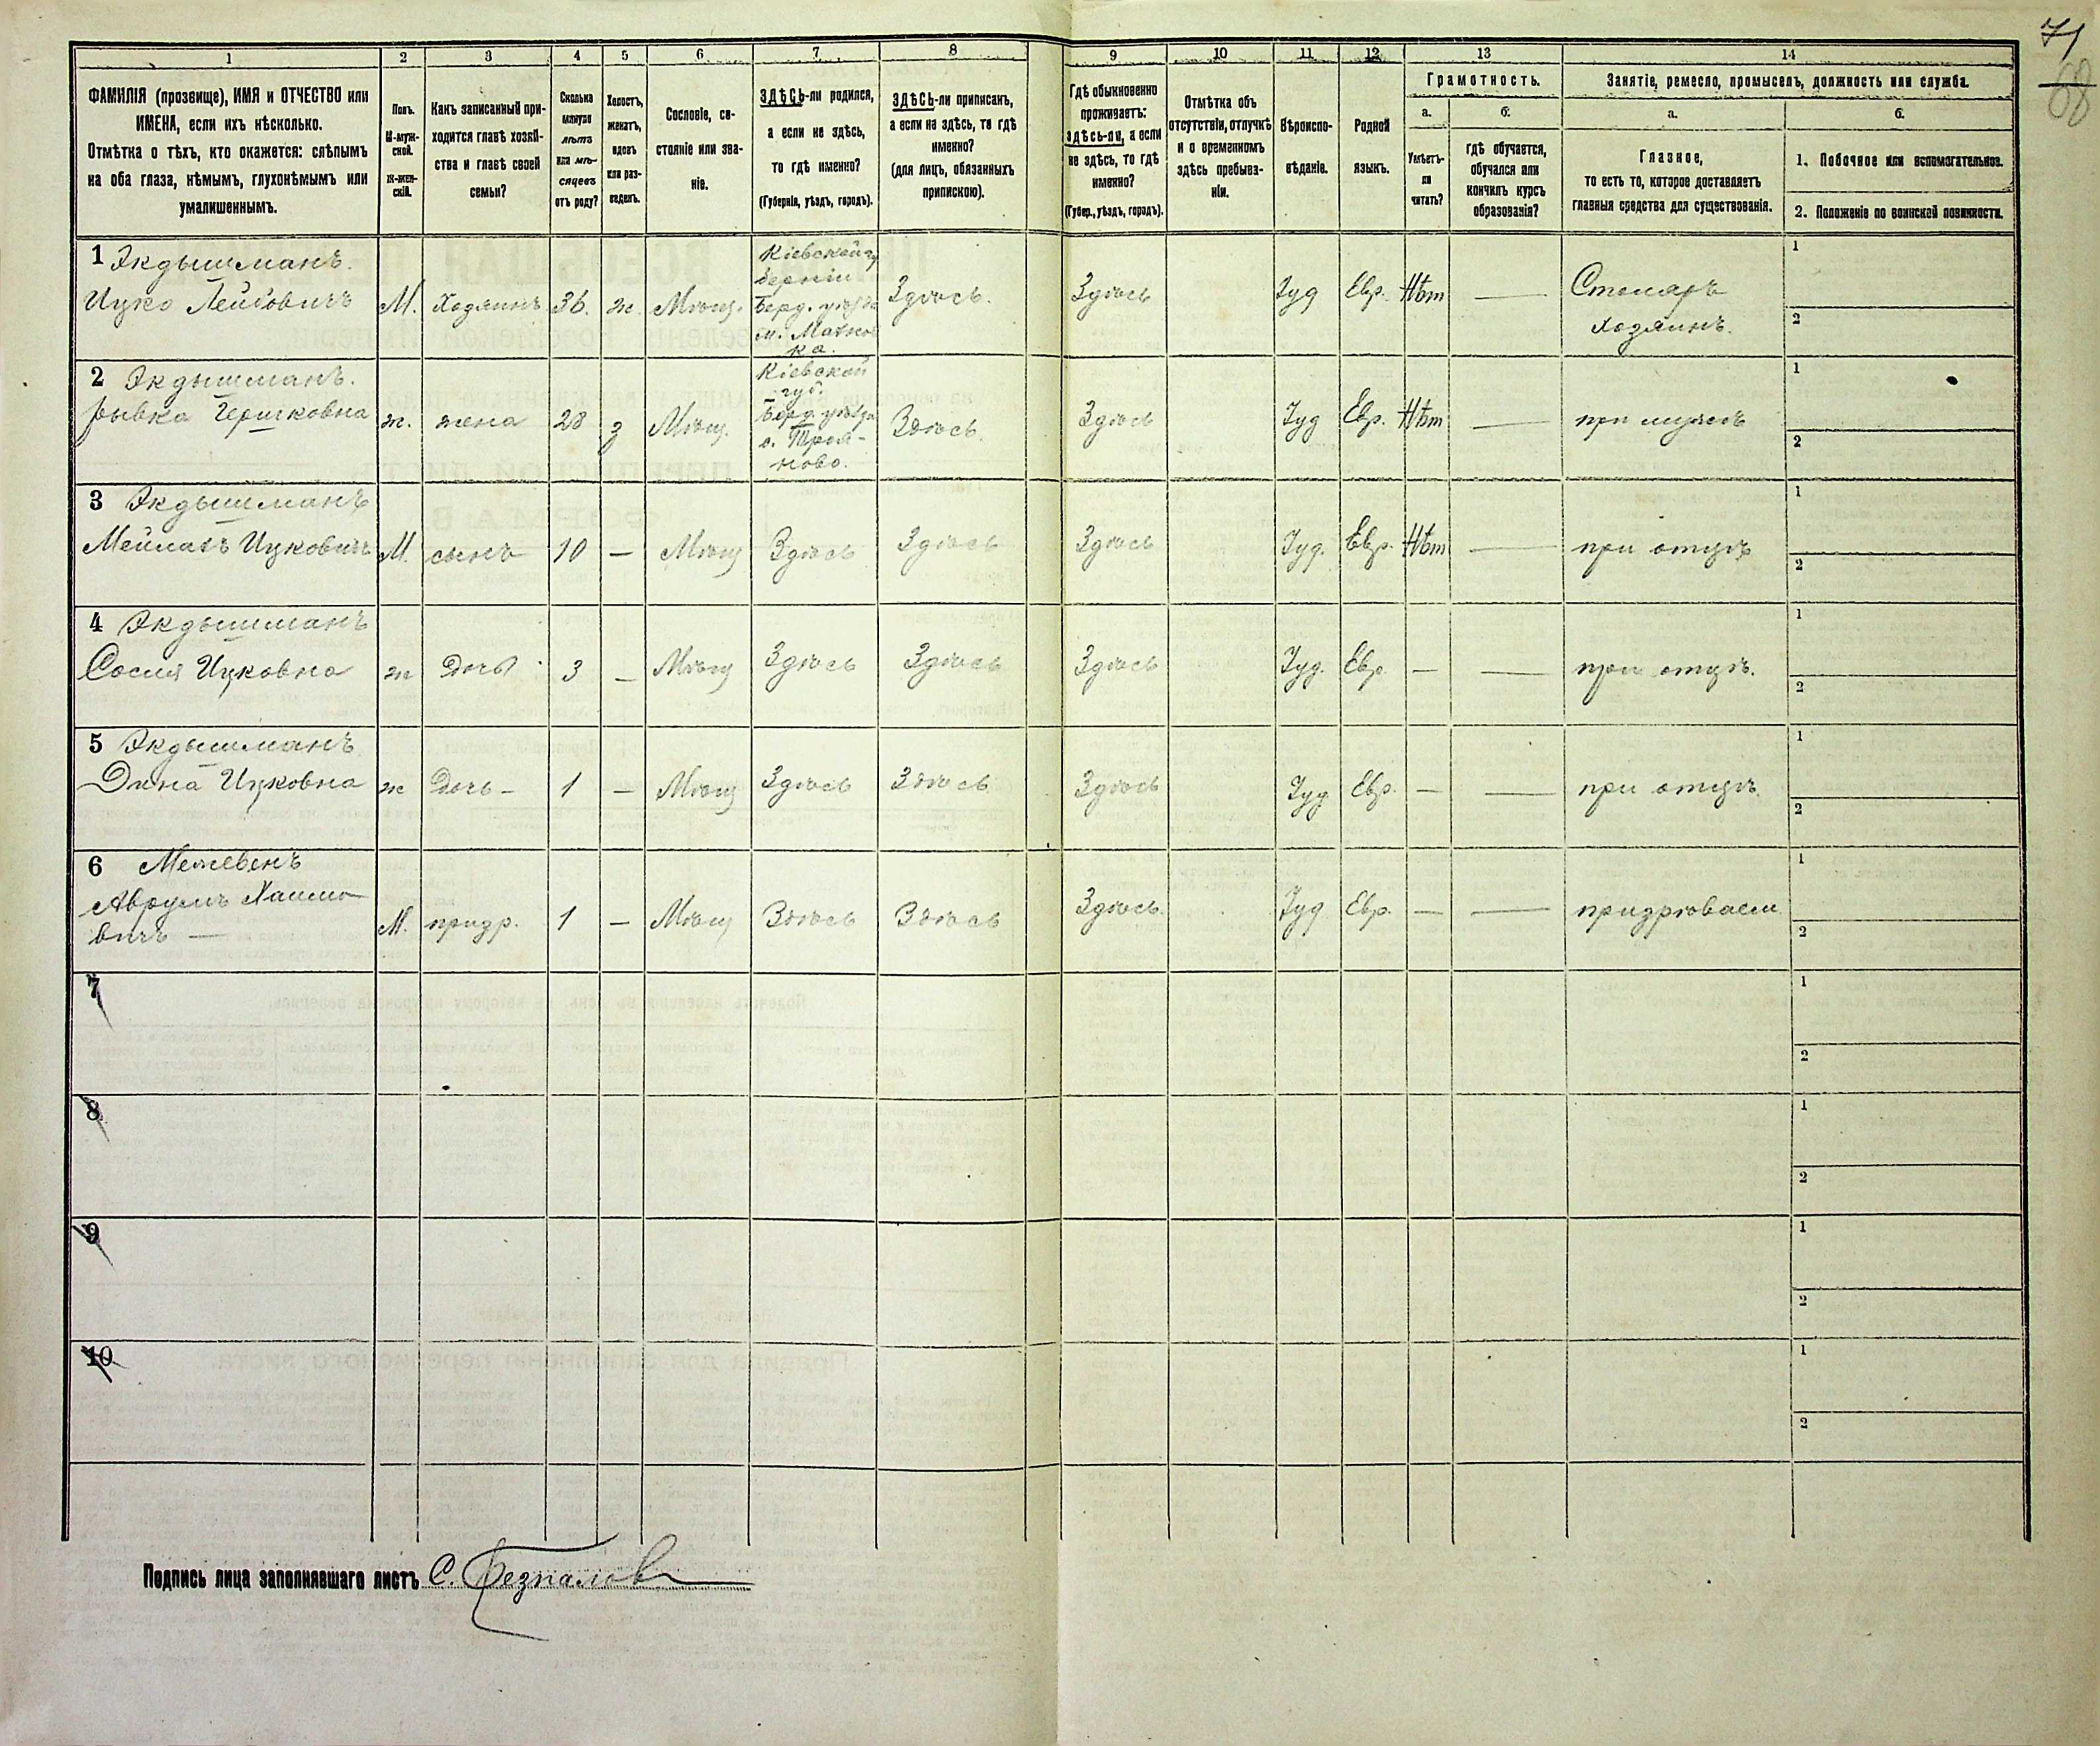 71
68
1 2 3 4 5 6 7 8 9 10 11 12 13 14
ФАМИЛІЯ (прозвище), ИМЯ и ОТЧЕСТВО или
ИМЕНА, если ихъ нѣсколько.
Отмѣтка о тѣхъ, кто окажется: слѣпымъ
на оба глаза, нѣмымъ, глухонѣмымъ или
умалишеннымъ.
Полъ.
М-муж-
ской.
Ж-жен-
скій.
Какъ записанный при-
ходится главѣ хозяй-
ства и главѣ своей
семьи?
Сколько
минуло
лѣтъ
или мѣ-
сяцевъ
отъ роду?
Холостъ,
женатъ,
вдовъ
или раз-
веденъ.
Сословіе, со-
стояніе или зва-
ніе.
ЗДѢСЬ-ли родился,
а если не здѣсь,
то гдѣ именно?
(Губернія, уѣздъ, городъ).
ЗДѢСЬ-ли приписанъ,
а если не здѣсь, то гдѣ
именно?
(для лицъ, обязанныхъ
припискою).
Гдѣ обыкновенно
проживаетъ:
здѣсь-ли, а если
не здѣсь, то гдѣ
именно?
(Губер., уѣздъ, городъ).
Отмѣтка объ
отсутствіи, отлучкѣ
и о временномъ
здѣсь пребыва-
ніи.
Вѣроиспо-
вѣданіе.
Родной
языкъ.
Грамотность.
а. б.
Умѣетъ-
ли
читать?
гдѣ обучается,
обучался или
кончилъ курсъ
образованія?
Занятіе, ремесло, промыселъ, должность или служба.
а. б.
Главное,
то есть то, которое доставляетъ
главныя средства для существованія.
1. Побочное или вспомогательное.
2. Положеніе по воинской повинности.
1 Экдышманъ.
Ицко Лейбовичъ М. Хозяинъ 36. ж. Мѣщ.
Кіевской гу
берніи
Берд. уѣзда
м. Махнов
ка.
Здѣсь. Здѣсь Іуд Евр. Нѣт —
Столяръ
хозяинъ.
1
2
2 Экдышманъ.
Рывка Гершковна ж. жена 28 з Мѣщ.
Кіевской
губ.
Берд. уѣзда
с. Троя-
ново.
Здѣсь. Здѣсь Іуд Евр. Нѣт — при мужѣ
1
2
3 Экдышманъ
Мейлахъ Ицковичъ М. сынъ 10 — Мѣщ Здѣсь Здѣсь Здѣсь Іуд. Евр. Нѣт — при отцѣ
1
2
4 Экдышманъ
Сосия Ицковна ж Дочь 3 — Мѣщ Здѣсь Здѣсь Здѣсь Іуд. Евр. — — при отцѣ.
1
2
5 Экдышманъ
Дина Ицковна ж Дочь - 1 — Мѣщ Здѣсь Здѣсь Здѣсь Іуд Евр. — — при отцѣ.
1
2
6 Межевенъ
Аврумъ Хаимо
вичъ — М. призр. 1 — Мѣщ Здѣсь Здѣсь Здѣсь. Іуд Евр. — — призрѣваем
1
2
7
1
2
8
1
2
9
1
2
10
1
2
Подпись лица заполнявшаго листъ С. Безпалов